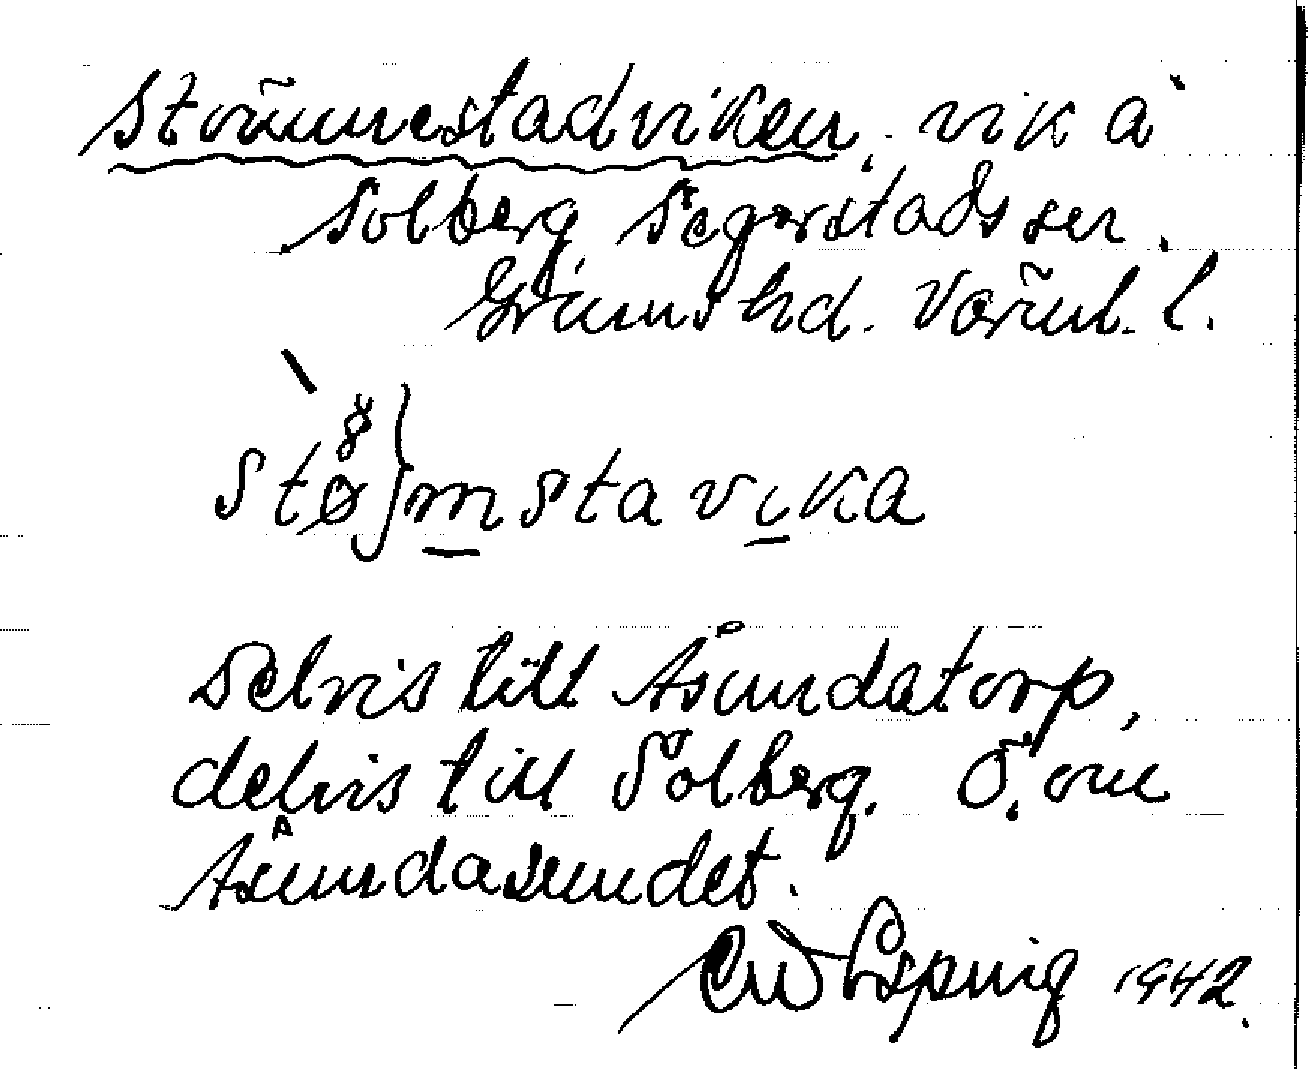 Strömnestadviken, vik å
Solberg Segerstads sn.
Grums hd. Värml. l.
stømstavika
Delvis till Åsundatorp,
delvis till Solberg. Ö. om
Åsundasundet.
1942.